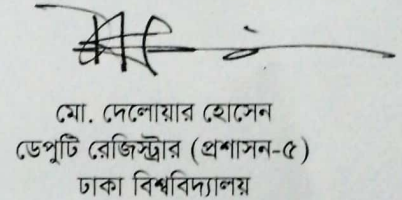 মো. দেলোয়ার হোসেন
ডেপুটি রেজিস্ট্রার (প্রশাসন-৫)
ঢাকা বিশ্ববিদ্যালয়